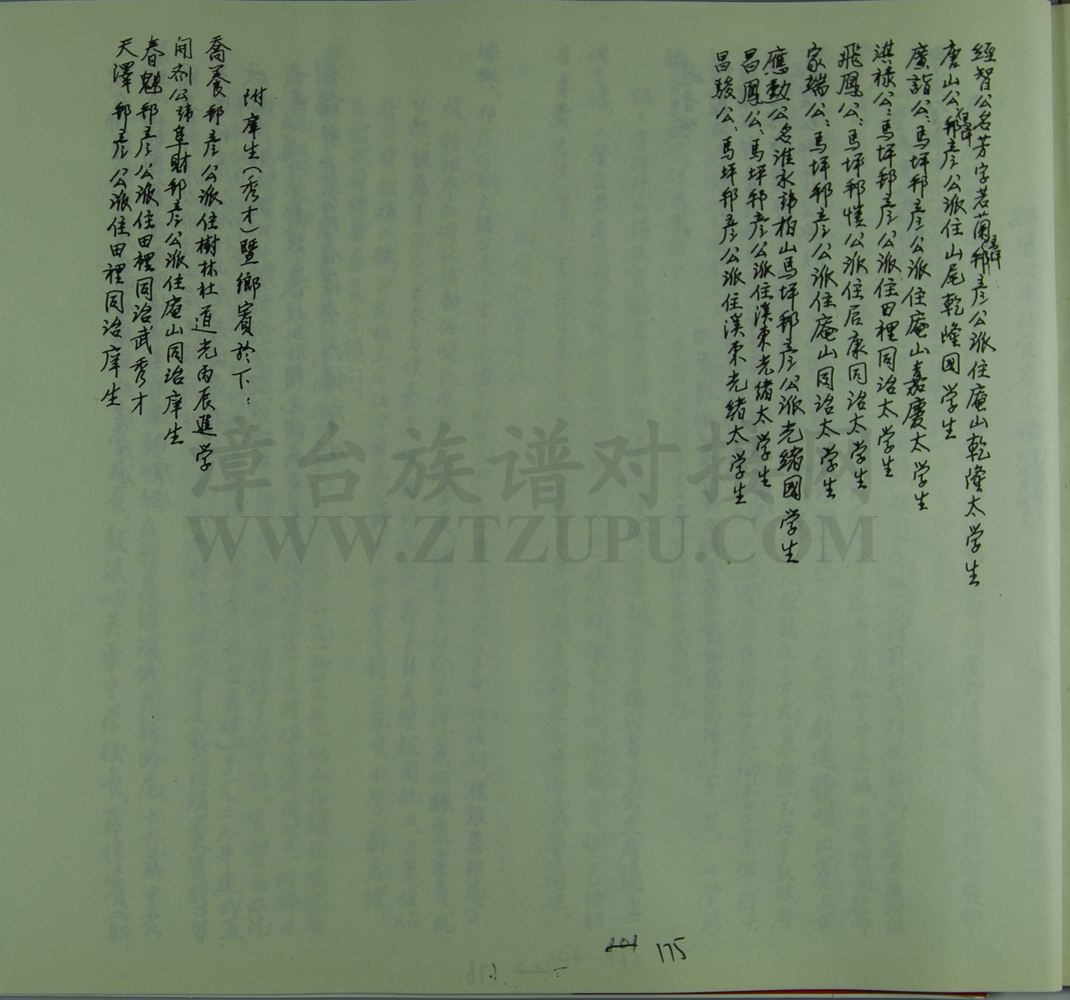 經智公名芳字若蘭馬坪邦彥公派住庵山乾隆太学生
唐山公馬坪邦彥公派住山尾乾隆國学生
廣詣公、馬坪邦彥公派住庵山嘉慶太学生
淇祿公、馬坪邦彥公派住田裡同治太学生
飛鳳公、馬坪邦憹公派住后康同治太学生
家瑞公、馬坪邦彥公派住庵山同治太学生
應勲公名淮水諱柏山馬坪邦彥公派光緒國学生
昌鳳公、馬坪邦彥公派住溪东光绪太学生
昌駿公、馬坪邦彥公派住溪东光緒太学生
附庠生(秀才)暨鄉賓於下:
喬養邦彥公派住樹林社道光丙辰進学
開公諱阜財邦彥公派住庵山同治庠生
春魁邦彥公派住田裡同治武秀才
天澤邦彥公派住田裡同治庠生
漳台族谱对接网
WWW.ZTZUPU.COM
175